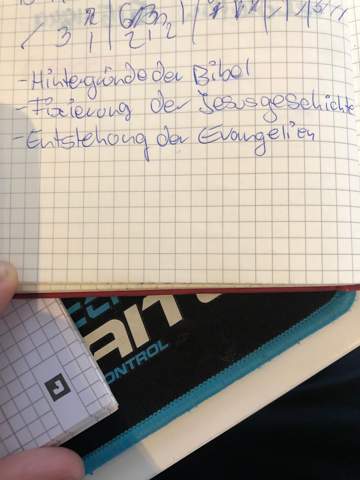 3 1 2 1 2
-Hintergründe der Bibel
-Fixierung der Jesusgeschichte
-Entstehung der Evangelien
CONTROL